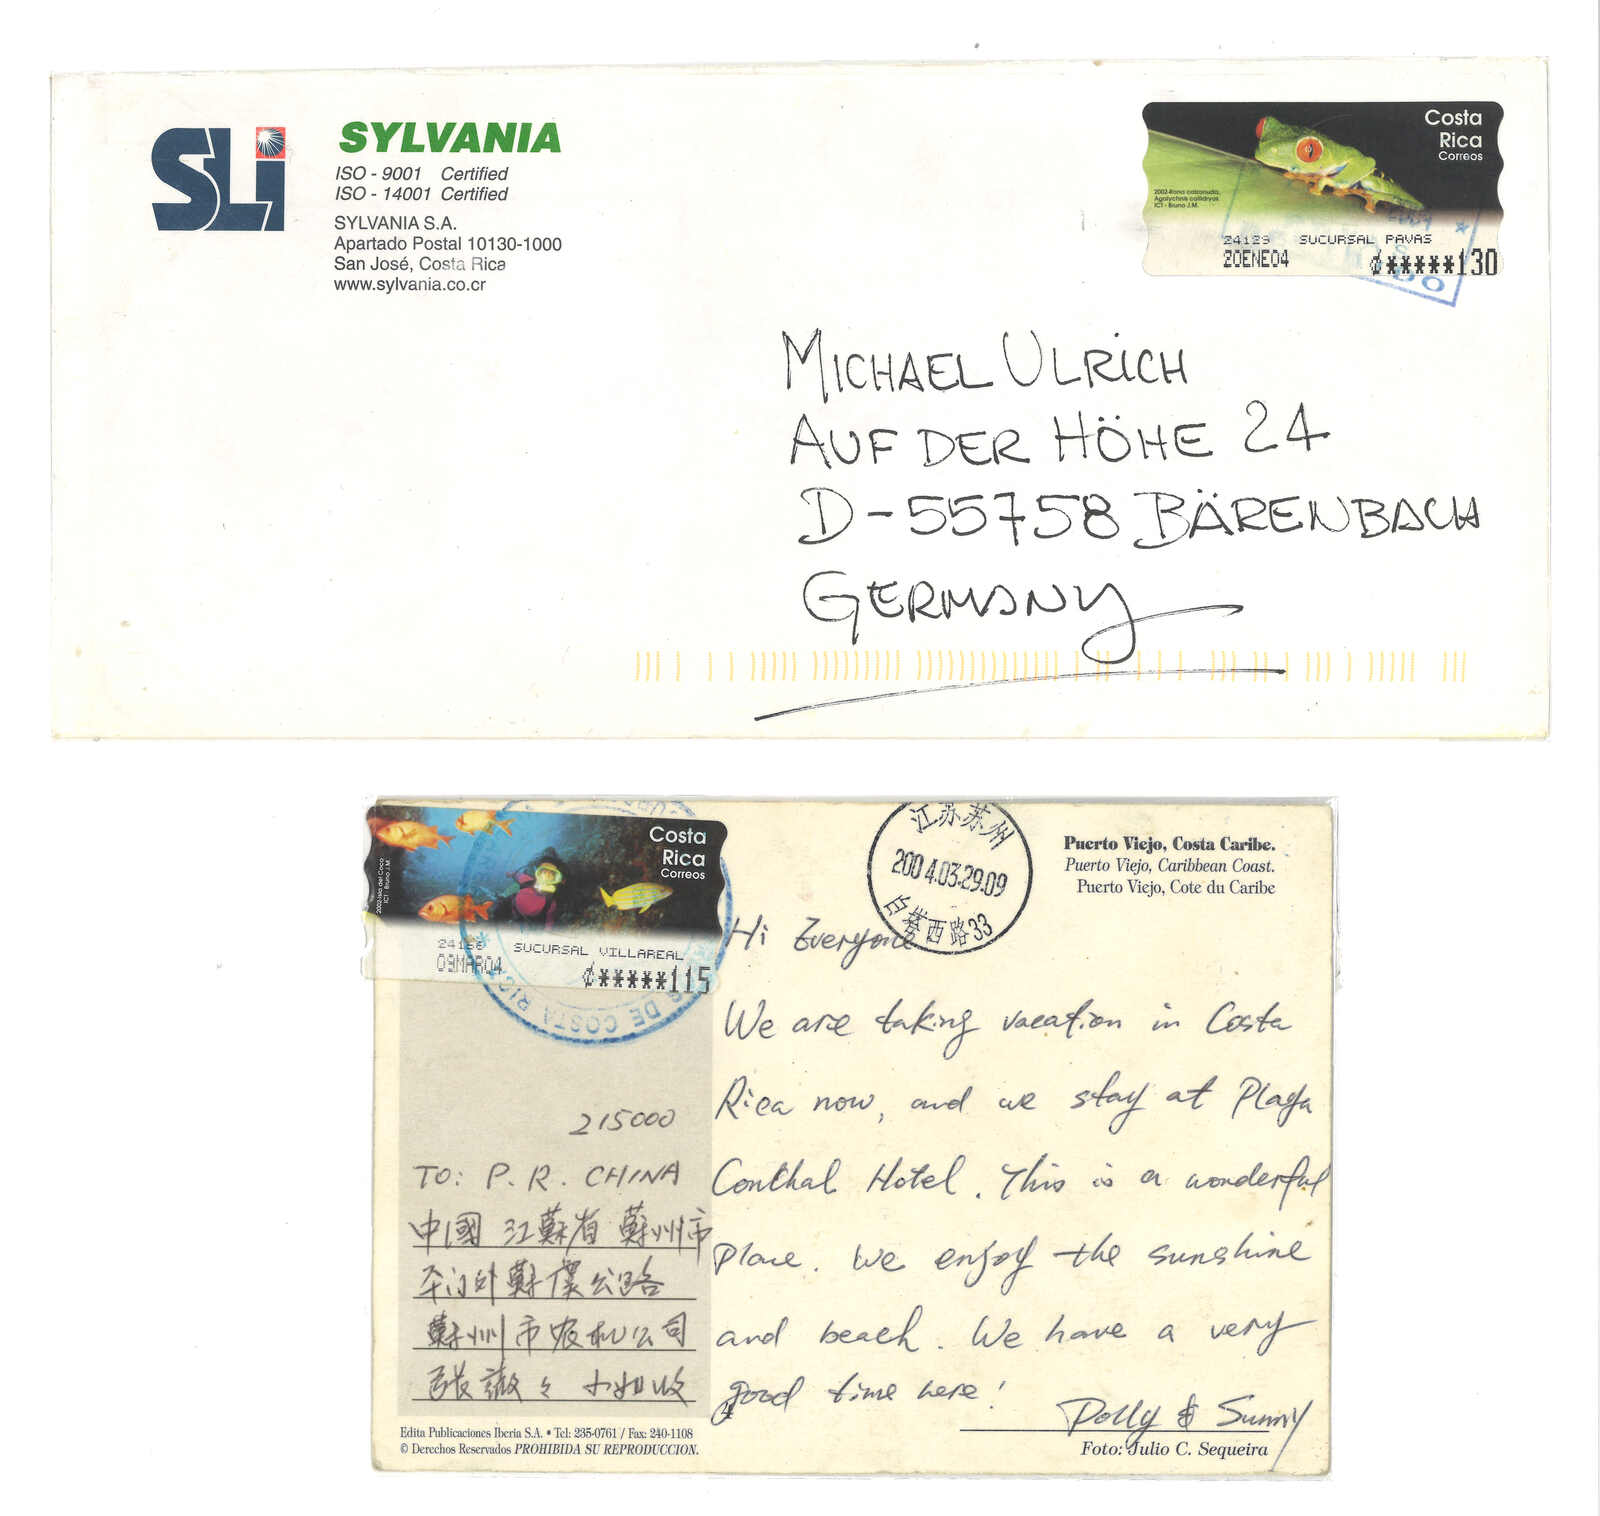 SLi
SYLVANIA
ISO - 9001 Certified
ISO - 14001 Certified
SYLVANIA S.A.
Apartado Postal 10130-1000
San José, Costa Rica
www.sylvania.co.cr
Costa
Rica
Correos
2002-Rana calzonuda,
Agalychnis callidryas
ICT - Bruno J.M.
24129 SUCURSAL PAVAS
20ENE04 ₡*****130
MICHAEL ULRICH
AUF DER HÖHE 24
D-55758 BÄRENBACH
GERMANY
Costa
Rica
Correos
2002-Isla del Coco
ICT - Bruno J.M.
SUCURSAL VILLAREAL
09MAR04 ₡*****115
DE COSTA RICA
江苏苏州
2004.03.29.09
白塔西路33
Puerto Viejo, Costa Caribe.
Puerto Viejo, Caribbean Coast.
Puerto Viejo, Cote du Caribe
Hi Everyone
We are taking vacation in Costa
Rica now, and we stay at Playa
Conthal Hotel. This is a wonderful
place. We enjoy the sunshine
and beach. We have a very
good time here!
Polly & Sunny
215000
TO: P.R. CHINA
中國 江蘇省 蘇州市
外蘇公路
蘇州市农机公司
張 小姐收
Edita Publicaciones Iberia S.A. • Tel: 235-0761 / Fax: 240-1108
© Derechos Reservados PROHIBIDA SU REPRODUCCION.
Foto: Julio C. Sequeira